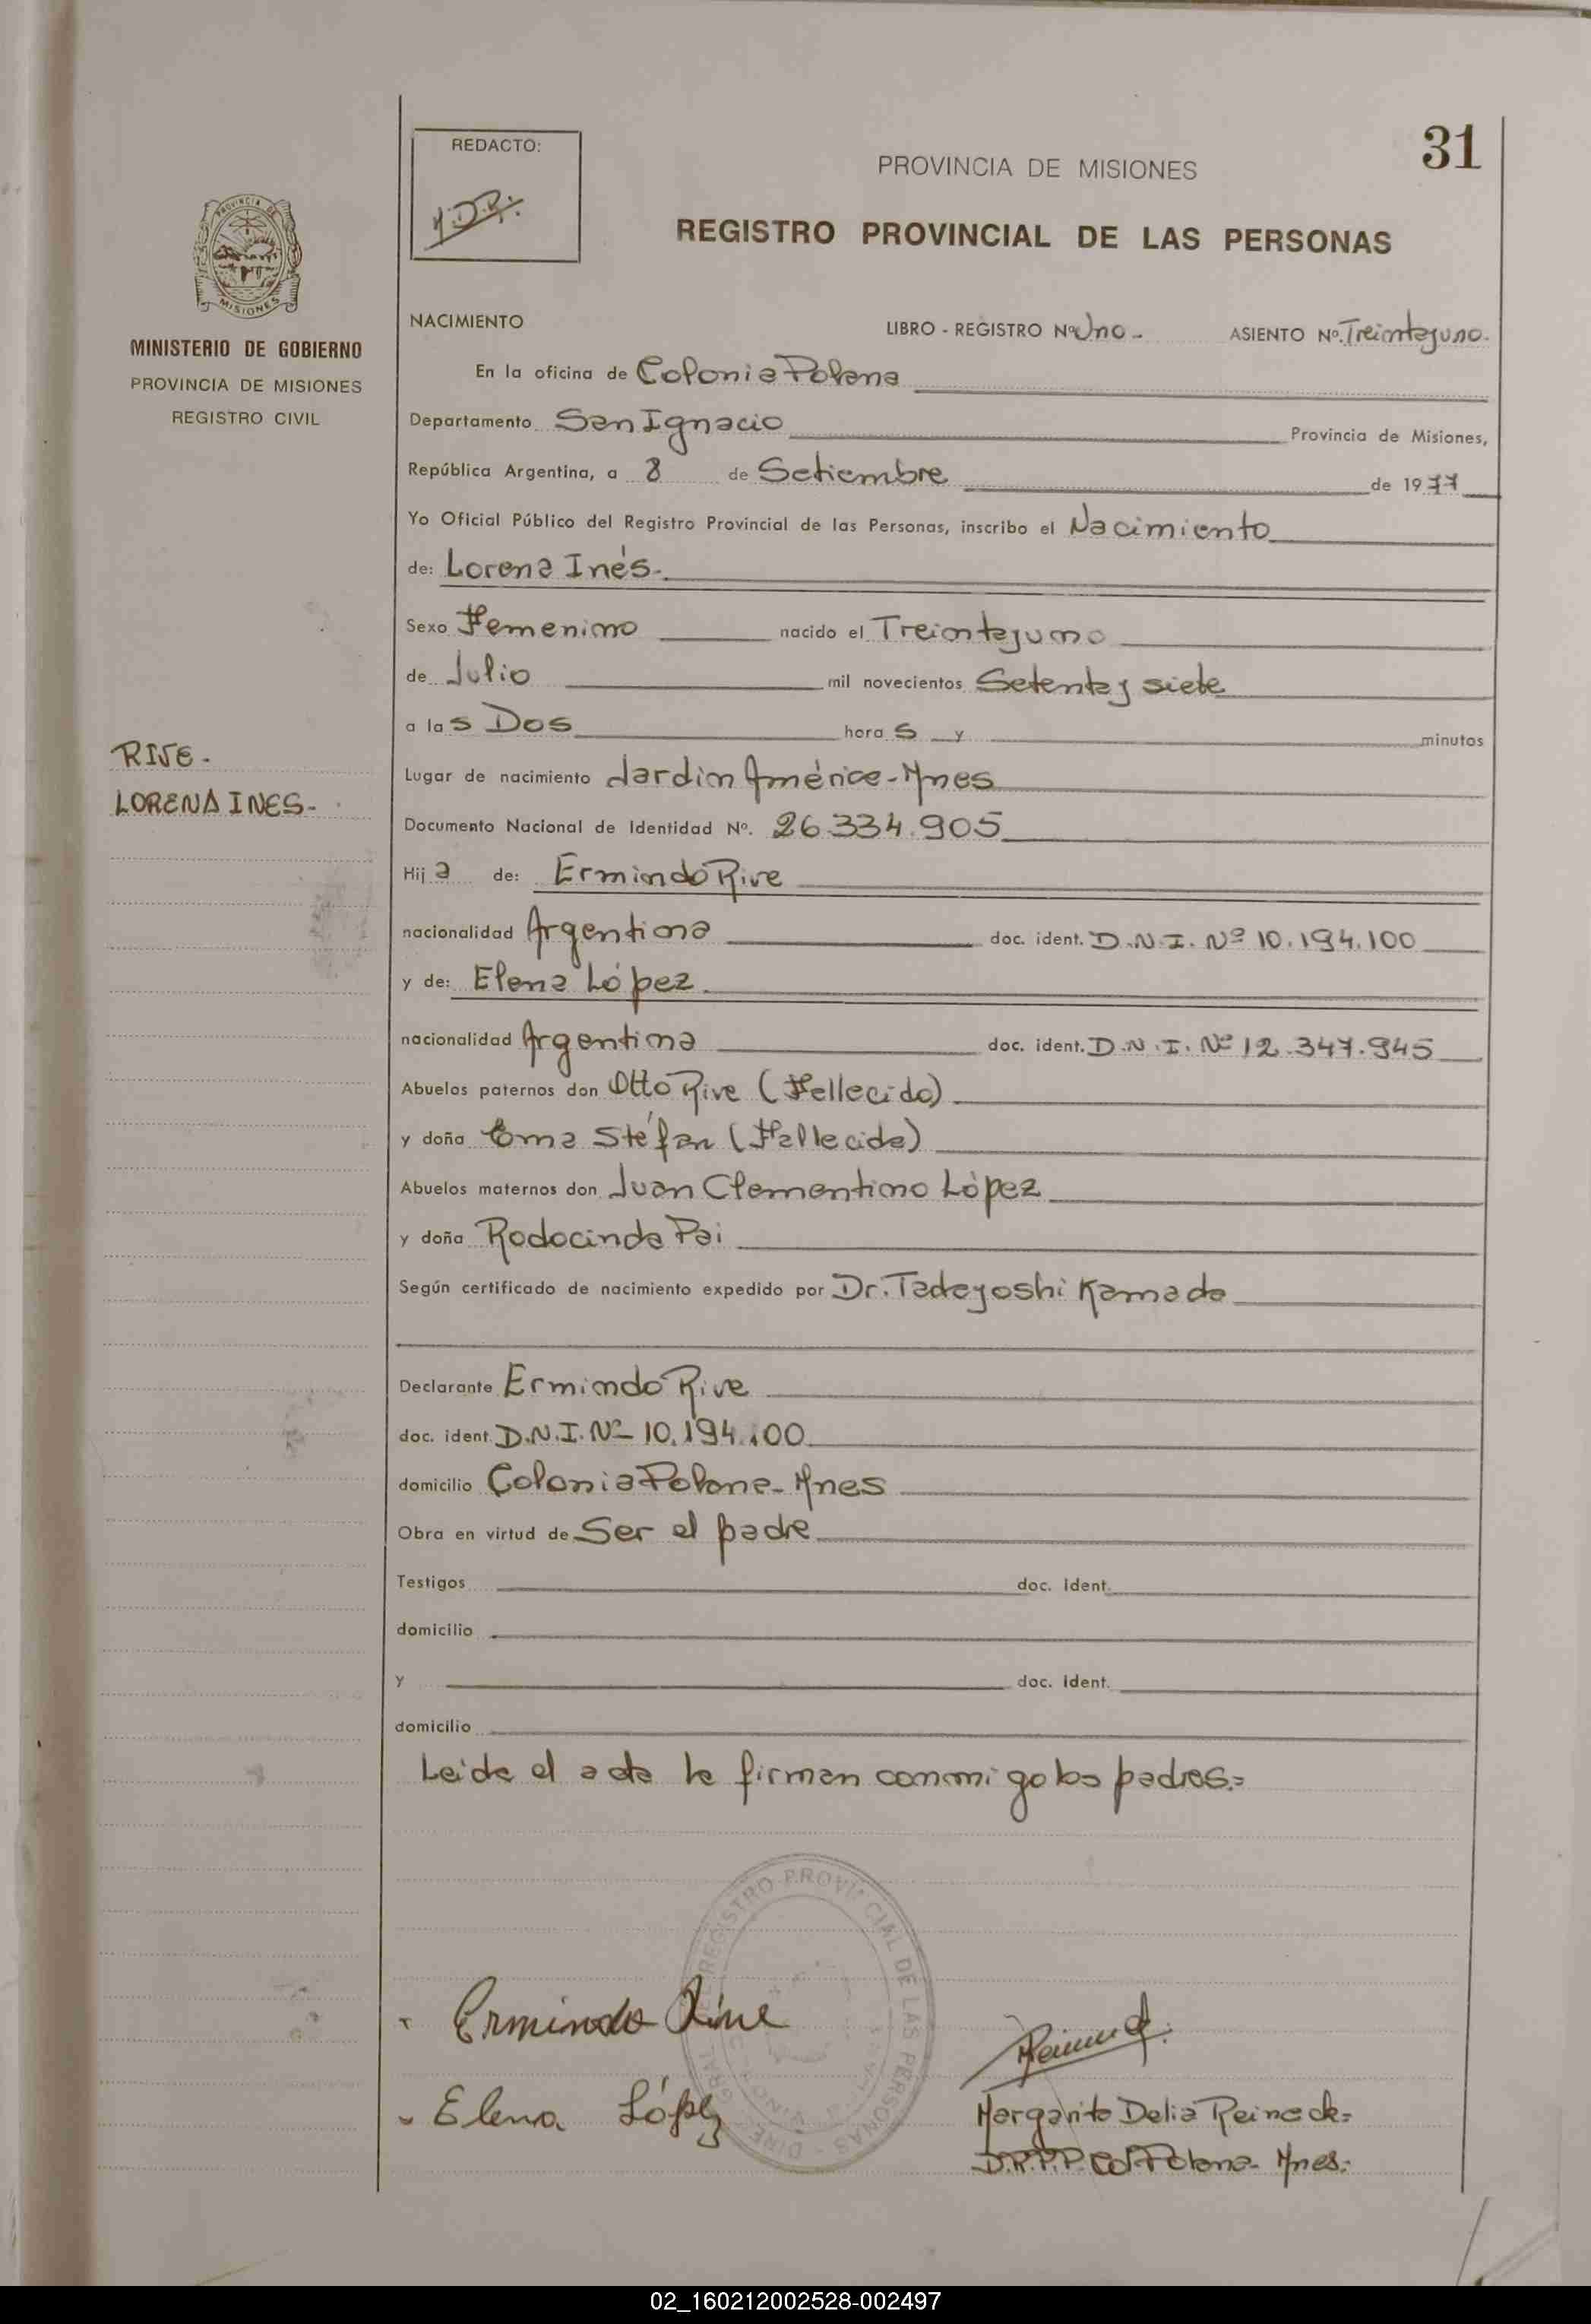 31
REDACTO:
M.D.R.
PROVINCIA DE MISIONES
REGISTRO PROVINCIAL DE LAS PERSONAS
PROVINCIA DE
MISIONES
MINISTERIO DE GOBIERNO
PROVINCIA DE MISIONES
REGISTRO CIVIL
NACIMIENTO LIBRO - REGISTRO Nº Uno - ASIENTO Nº. Treintayuno.
En la oficina de Colonia Polana
Departamento San Ignacio Provincia de Misiones,
República Argentina, a 8 de Setiembre de 1977
Yo Oficial Público del Registro Provincial de las Personas, inscribo el Nacimiento
de: Lorena Inés.
Sexo Femenino nacido el Treintayuno
de Julio mil novecientos Setenta y siete
a las Dos horas y minutos
RIVE.
LORENA INES-
Lugar de nacimiento Jardín América-Mnes
Documento Nacional de Identidad Nº. 26.334.905
Hija de: Ermindo Rive
nacionalidad Argentina doc. ident. D.N.I. Nº 10.194.100
y de: Elena López
nacionalidad Argentina doc. ident. D.N.I. Nº 12.347.945
Abuelos paternos don Otto Rive (Fallecido)
y doña Ema Stéfan (Fallecida)
Abuelos maternos don Juan Clementino López
y doña Rodocinda Pai
Según certificado de nacimiento expedido por Dr. Tadeyoshi Kamada
Declarante Ermindo Rive
doc. ident. D.N.I. Nº 10.194.100
domicilio Colonia Polana-Mnes
Obra en virtud de Ser el padre
Testigos doc. ident.
domicilio
y doc. ident.
domicilio
Leida el acta la firman conmigo los padres.=
Ermindo Rive
Elena López
Margarita Delia Reineck=
D.R.P.P. Col Polana- Mnes.
02_160212002528-002497